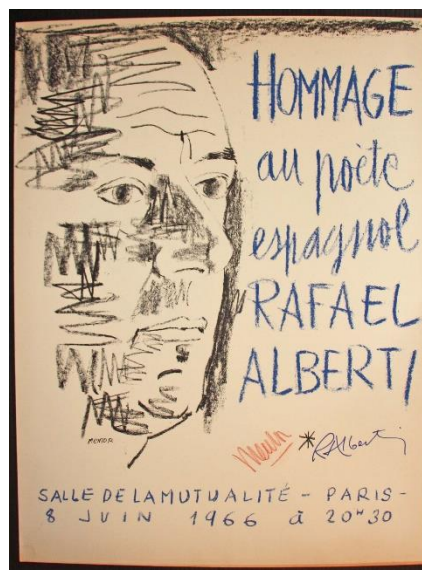 HOMMAGE
au poète
espagnol
RAFAEL
ALBERTI
MENTOR
RAlberti
SALLE DE LA MUTUALITÉ - PARIS -
8 JUIN 1966 à 20H30